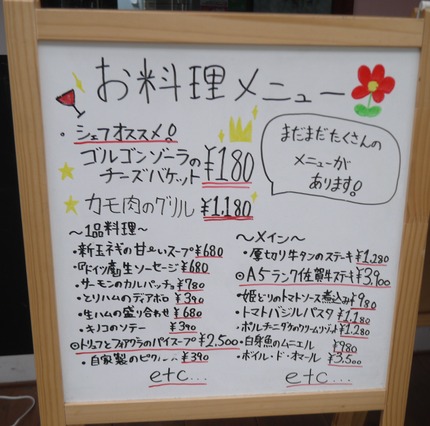 お料理メニュー
・シェフオススメ!
ゴルゴンゾーラの
チーズバケット ¥180
カモ肉のグリル ¥1.180
まだまだたくさんの
メニューが
あります!
〜1品料理〜
・新玉ネギの甘〜いスープ ¥680
・『ドイツ産』生ソーセージ ¥680
・サーモンのカルパッチョ ¥780
・とりハムのディアボロ ¥390
・生ハムの盛り合わせ ¥680
・キノコのソテー ¥390
◎トリュフとフォアグラのパイスープ ¥2.500
・自家製のピクルス ¥390
etc...
〜メイン〜
・厚切り牛タンのステーキ ¥1.280
◎A5ランク佐賀牛ステーキ ¥3.900
・姫どりのトマトソース煮込み ¥980
・トマトバジルパスタ ¥1.180
・ポルチーニダケのクリームリゾット ¥1.280
・白身魚のムニエル ¥980
・ボイル・ド・オマール ¥3.500
etc...